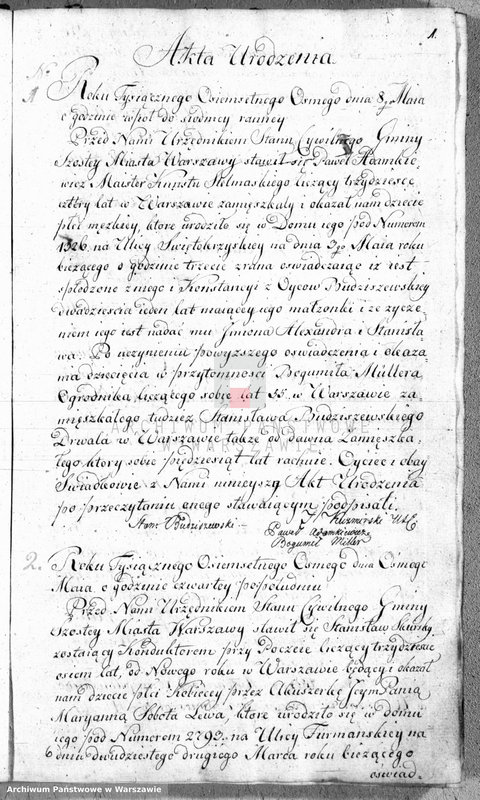 1.
Akta Urodzenia
No
1 Roku Tysiącznego Osiemsetnego Osmego dnia 8go Maia
o godzinie wpoł do siodmey ranney
Przed Nami Urzędnikiem Stanu Cywilnego Gminy
Szostey Miasta Warszawy stawił się Paweł Adamkie-
wicz Maister Kunsztu Stelmaskiego liczący trzydzieści
cztery lat w Warszawie zamięszkały i okazał nam dziecie
płci męzkiey, ktore urodziło się w Domu iego pod Numerem
1326. na Ulicy Swiętokrzyskiey na dniu 3go Maia roku
bieżącego o godzinie trzecie zrana oswiadczaiąc iż iest
spłodzone z niego i Konstancyi z Oycow Budziszewskiey
dwadziescia ieden lat maiącey iego małżonki i że życze-
niem iego iest nadać mu Jmiona Alexandra i Stanisła-
wa. Po uczynieniu powyższego oswiadczenia i okaza-
nia dziecięcia w przytomnosci Bogumiła Müllera
Ogrodnika liczącego sobie lat 35. w Warszawie za-
mięszkałego tudzież Stanisława Budziszewskiego
Drwala w Warszawie także od dawna zamieszka-
łego ktory sobie pięćdziesiąt lat rachuie. Oyciec i obay
Swiadkowie z Nami ninieyszy Akt Urodzenia
po przeczytaniu onego stawaiącym podpisali.
Stan: Budziszewski
Paweł Adamkiewicz
Bogumił Miller
2. Roku Tysiącznego Osiemsetnego Osmego dnia Osmego
Maia o godzinie czwartey popołudniu
Przed Nami Urzędnikiem Stanu Cywilnego Gminy
Szostey Miasta Warszawy stawił się Stanisław
zostaiący Konduktorem przy Poczcie liczący trzydzieści
osiem lat, od Nowego roku w Warszawie będący i okazał
nam dziecie płci Kobiecey przez Akuszerkę Panią
Maryannę Sobota Lewa, ktore urodziło się w domu
iego pod Numerem 2793. na Ulicy Furmanskiey na
dniu dwudziestego drugiego Marca roku bieżącego
oswiad-
ARCHIWUM PAŃSTWOWE
W WARSZAWIE
Archiwum Państwowe w Warszawie